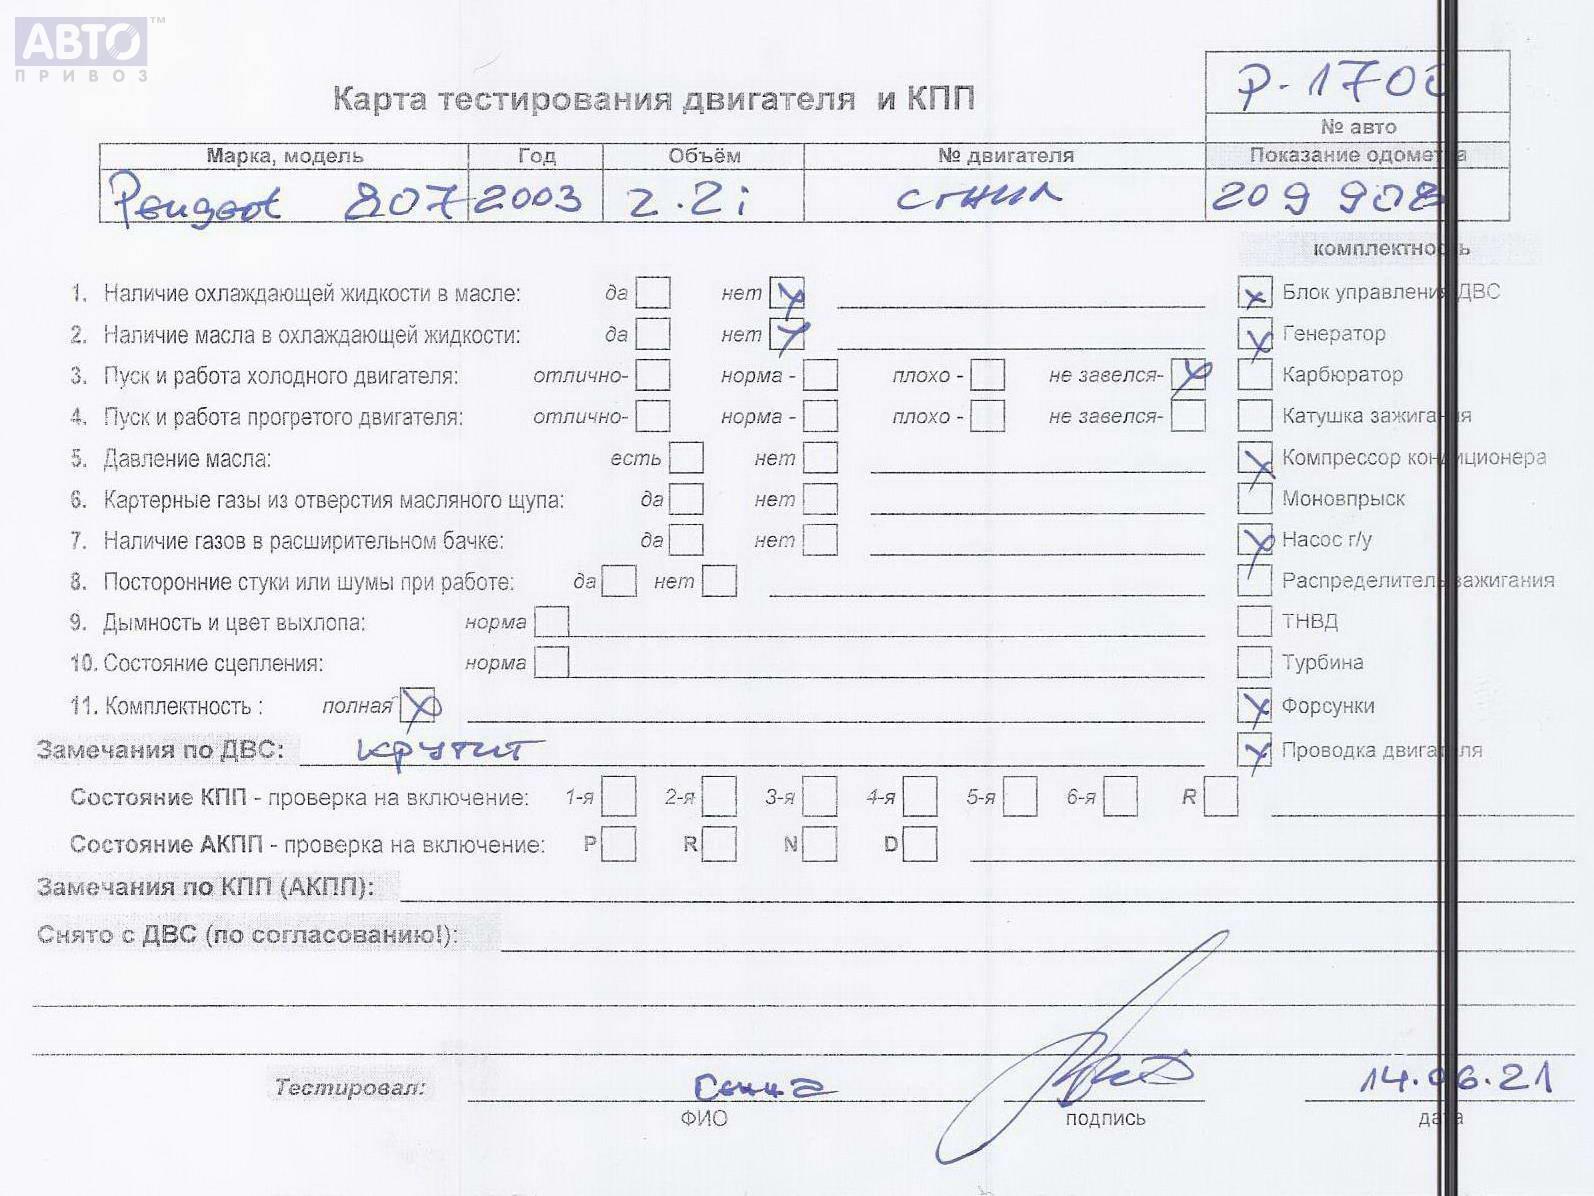 АВТО™
ПРИВОЗ
Карта тестирования двигателя и КПП
P-1700
№ авто
Марка, модель Год Объём № двигателя Показание одометра
Peugeot 807 2003 2.2i сгнил 209 908
комплектность
1. Наличие охлаждающей жидкости в масле: да нет x x Блок управления ДВС
2. Наличие масла в охлаждающей жидкости: да нет x x Генератор
3. Пуск и работа холодного двигателя: отлично- норма - плохо - не завелся- x Карбюратор
4. Пуск и работа прогретого двигателя: отлично- норма - плохо - не завелся- Катушка зажигания
5. Давление масла: есть нет x Компрессор кондиционера
6. Картерные газы из отверстия масляного щупа: да нет Моновпрыск
7. Наличие газов в расширительном бачке: да нет x Насос г/у
8. Посторонние стуки или шумы при работе: да нет Распределитель зажигания
9. Дымность и цвет выхлопа: норма ТНВД
10. Состояние сцепления: норма Турбина
11. Комплектность : полная x x Форсунки
Замечания по ДВС: крутит x Проводка двигателя
Состояние КПП - проверка на включение: 1-я 2-я 3-я 4-я 5-я 6-я R
Состояние АКПП - проверка на включение: P R N D
Замечания по КПП (АКПП):
Снято с ДВС (по согласованию!):
Тестировал: 14.06.21
ФИО подпись дата